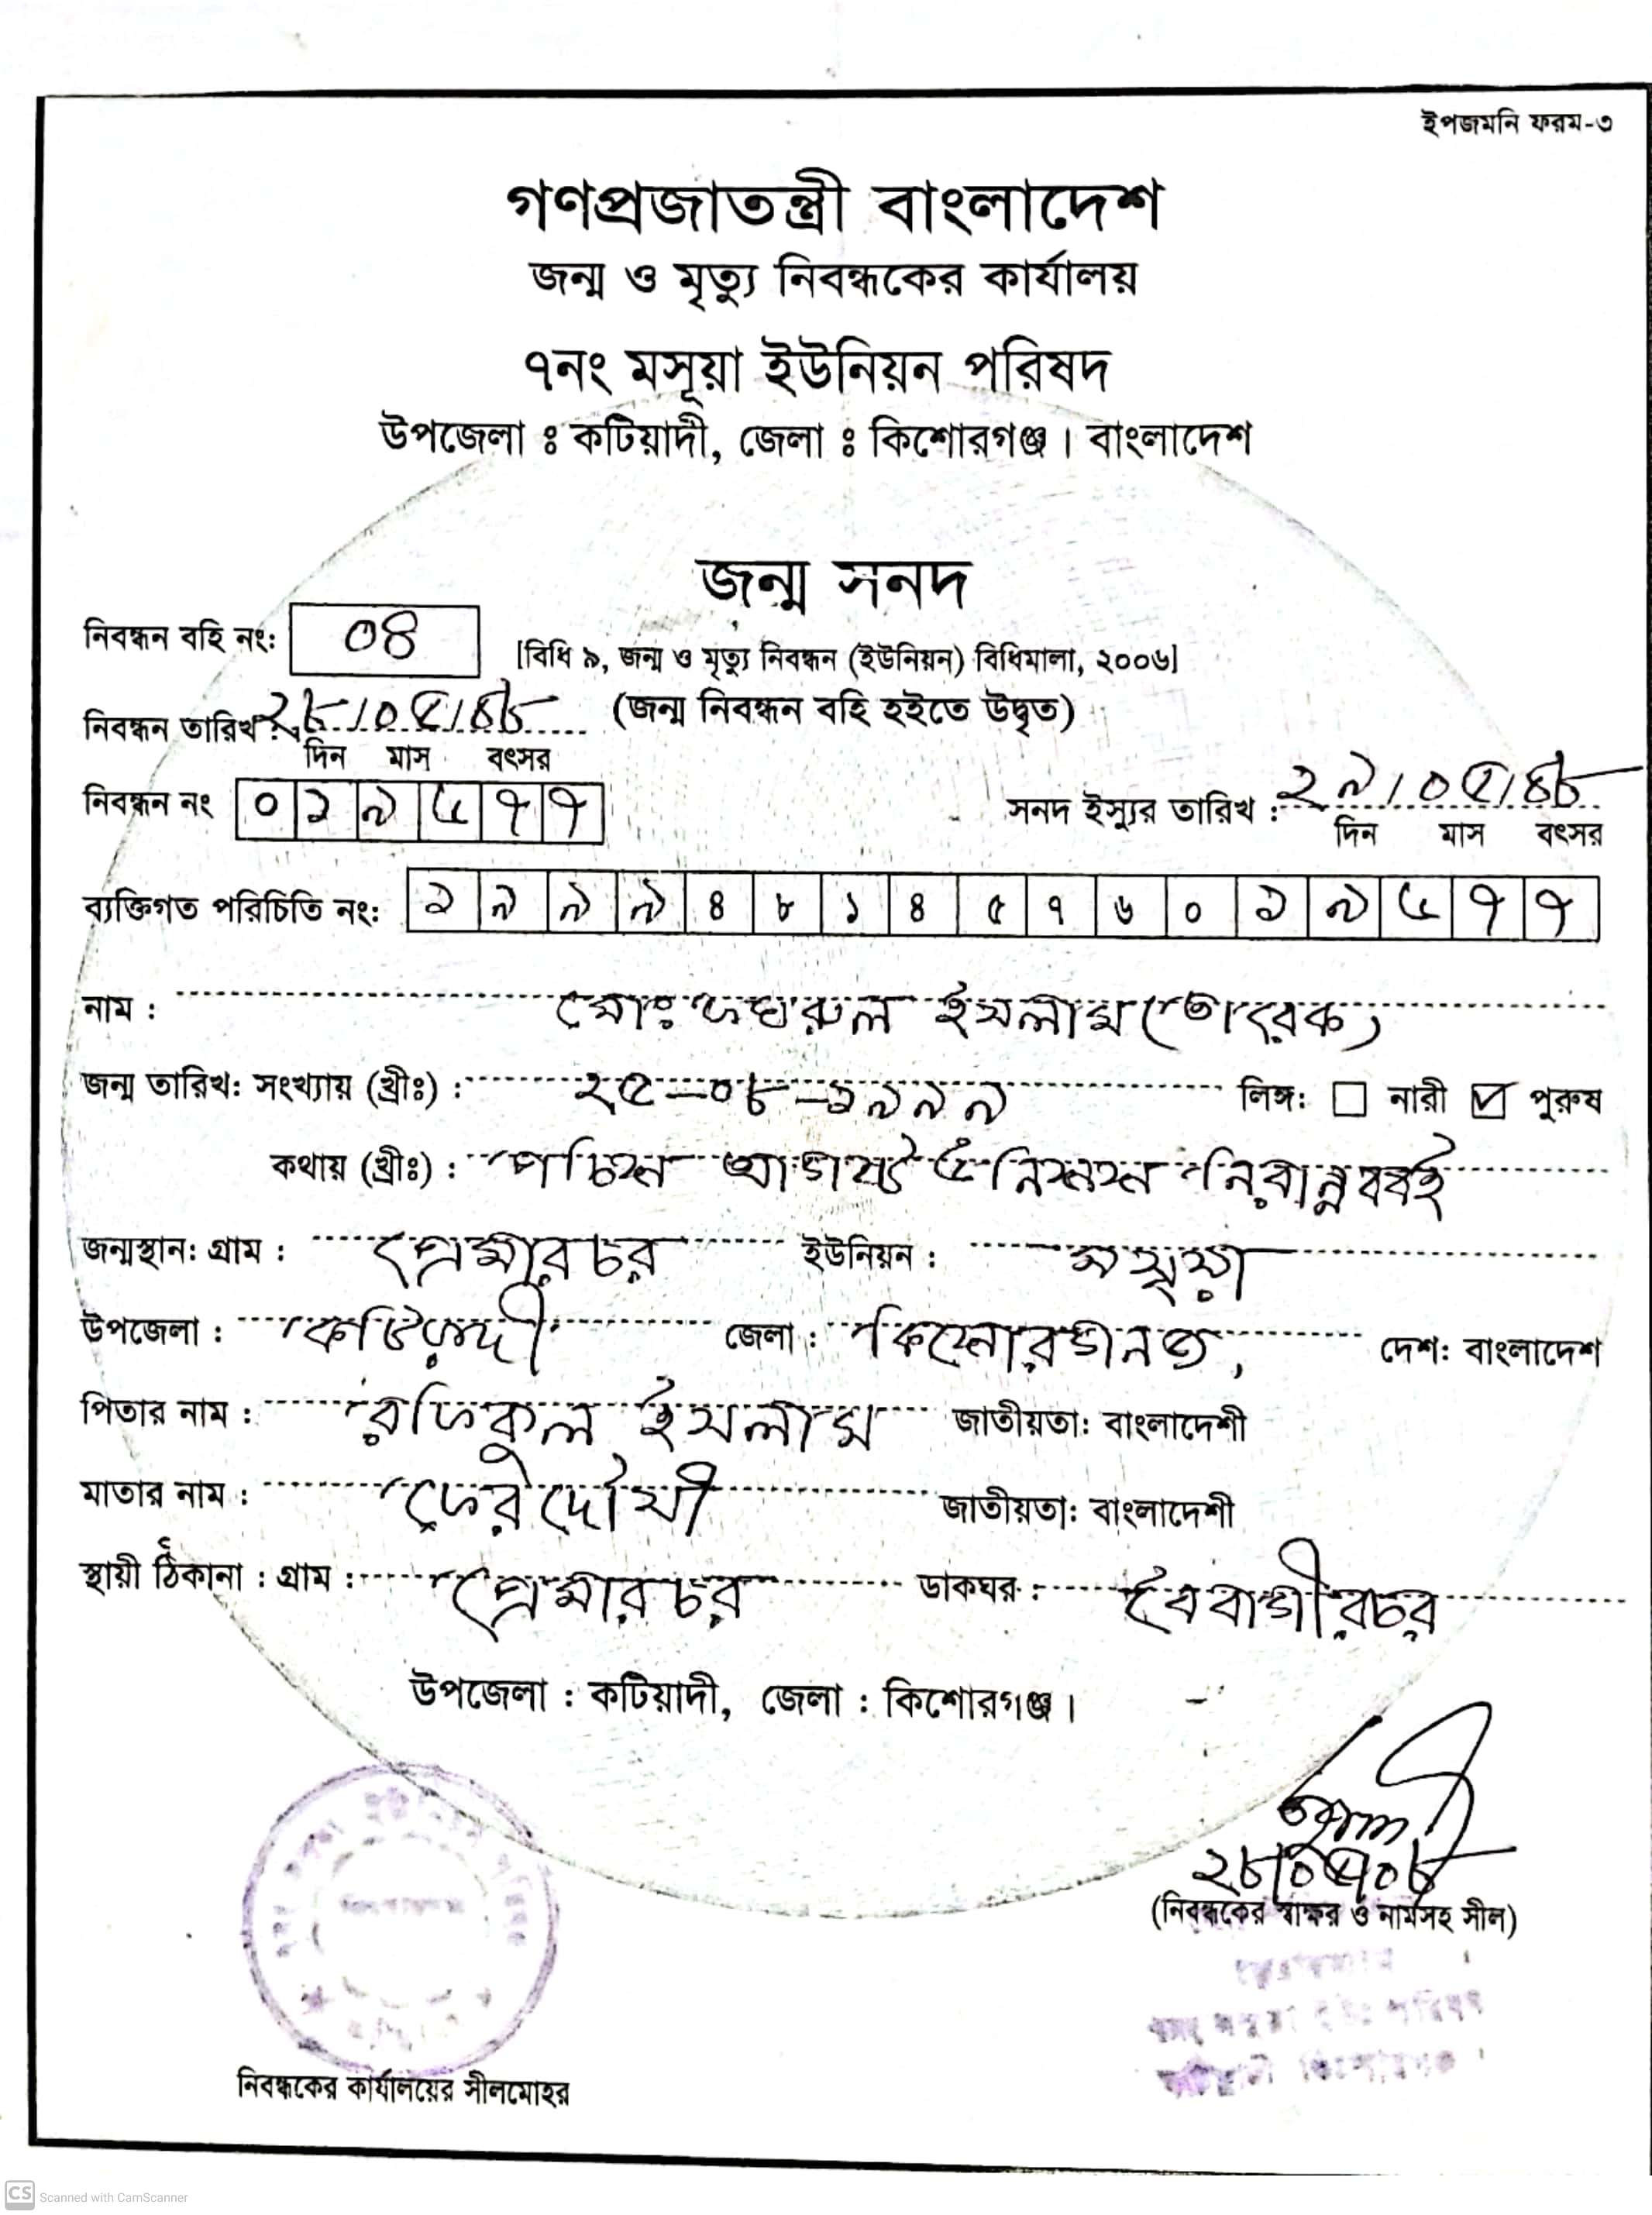 ইপজমনি ফরম-৩
গণপ্রজাতন্ত্রী বাংলাদেশ
জন্ম ও মৃত্যু নিবন্ধকের কার্যালয়
৭নং মসূয়া ইউনিয়ন পরিষদ
উপজেলা ঃ কটিয়াদী, জেলা ঃ কিশোরগঞ্জ। বাংলাদেশ
জন্ম সনদ
নিবন্ধন বহি নং: ০৪
[বিধি ৯, জন্ম ও মৃত্যু নিবন্ধন (ইউনিয়ন) বিধিমালা, ২০০৬]
নিবন্ধন তারিখ : (জন্ম নিবন্ধন বহি হইতে উদ্বৃত)
দিন মাস বৎসর
নিবন্ধন নং ০১৯৫৭৭ সনদ ইস্যুর তারিখ :
দিন মাস বৎসর
ব্যক্তিগত পরিচিতি নং: ১৯৯৯৪৮১৪৫৭৬০১৯৫৭৭
নাম : মোঃ ইসলাম
জন্ম তারিখ: সংখ্যায় (খ্রীঃ) : ২৫-০৮-১৯৯৯ লিঙ্গ: নারী পুরুষ
কথায় (খ্রীঃ) : পচিশ আগষ্ট উনিশশ নিরান্নব্বই
জন্মস্থান: গ্রাম : প্রেমারচর ইউনিয়ন : মসূয়া
উপজেলা : কটিয়াদী জেলা : কিশোরগনজ, দেশ: বাংলাদেশ
পিতার নাম : রফিকুল ইসলাম জাতীয়তা: বাংলাদেশী
মাতার নাম : ফেরদৌসী জাতীয়তা: বাংলাদেশী
স্থায়ী ঠিকানা : গ্রাম : প্রেমারচর ডাকঘর : বৈরাগীরচর
উপজেলা : কটিয়াদী, জেলা : কিশোরগঞ্জ।
২৮/০৫/০৮
(নিবন্ধকের স্বাক্ষর ও নামসহ সীল)
নিবন্ধকের কার্যালয়ের সীলমোহর
CS Scanned with CamScanner